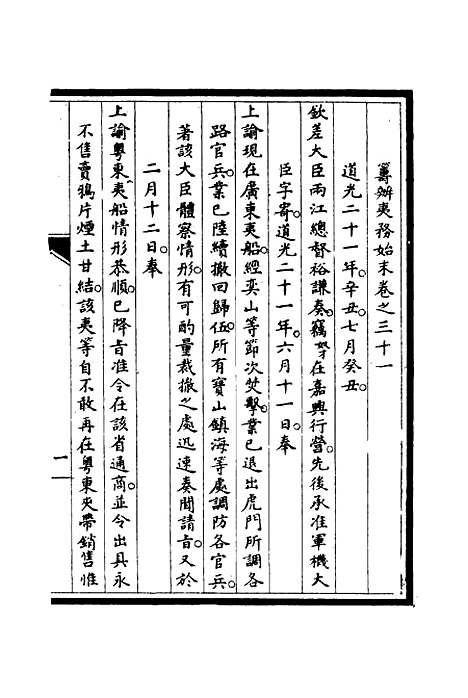 籌辦夷務始末卷之三十一
道光二十一年。辛丑。七月癸丑。
欽差大臣兩江總督裕謙奏。竊奴才在嘉興行營。先後承准軍機大
臣字寄。道光二十一年。六月十一日。奉
上諭現在廣東夷船。經奕山等節次焚擊。業已退出虎門所調各
路官兵。業已陸續撤回歸伍。所有寶山鎮海等處調防各官兵。
著該大臣體察情形。有可酌量裁撤之處迅速奏聞請旨。又於
二月十二日。奉
上諭粵東夷船情形恭順。已降旨准令在該省通商。並令出具永
不售賣鴉片煙土甘結。該夷等自不敢再在粵東夾帶銷售惟
一